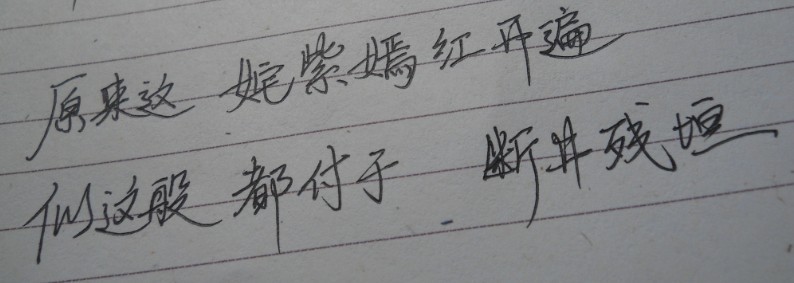 原来这 姹紫嫣红开遍
似这般 都付于 断井残垣